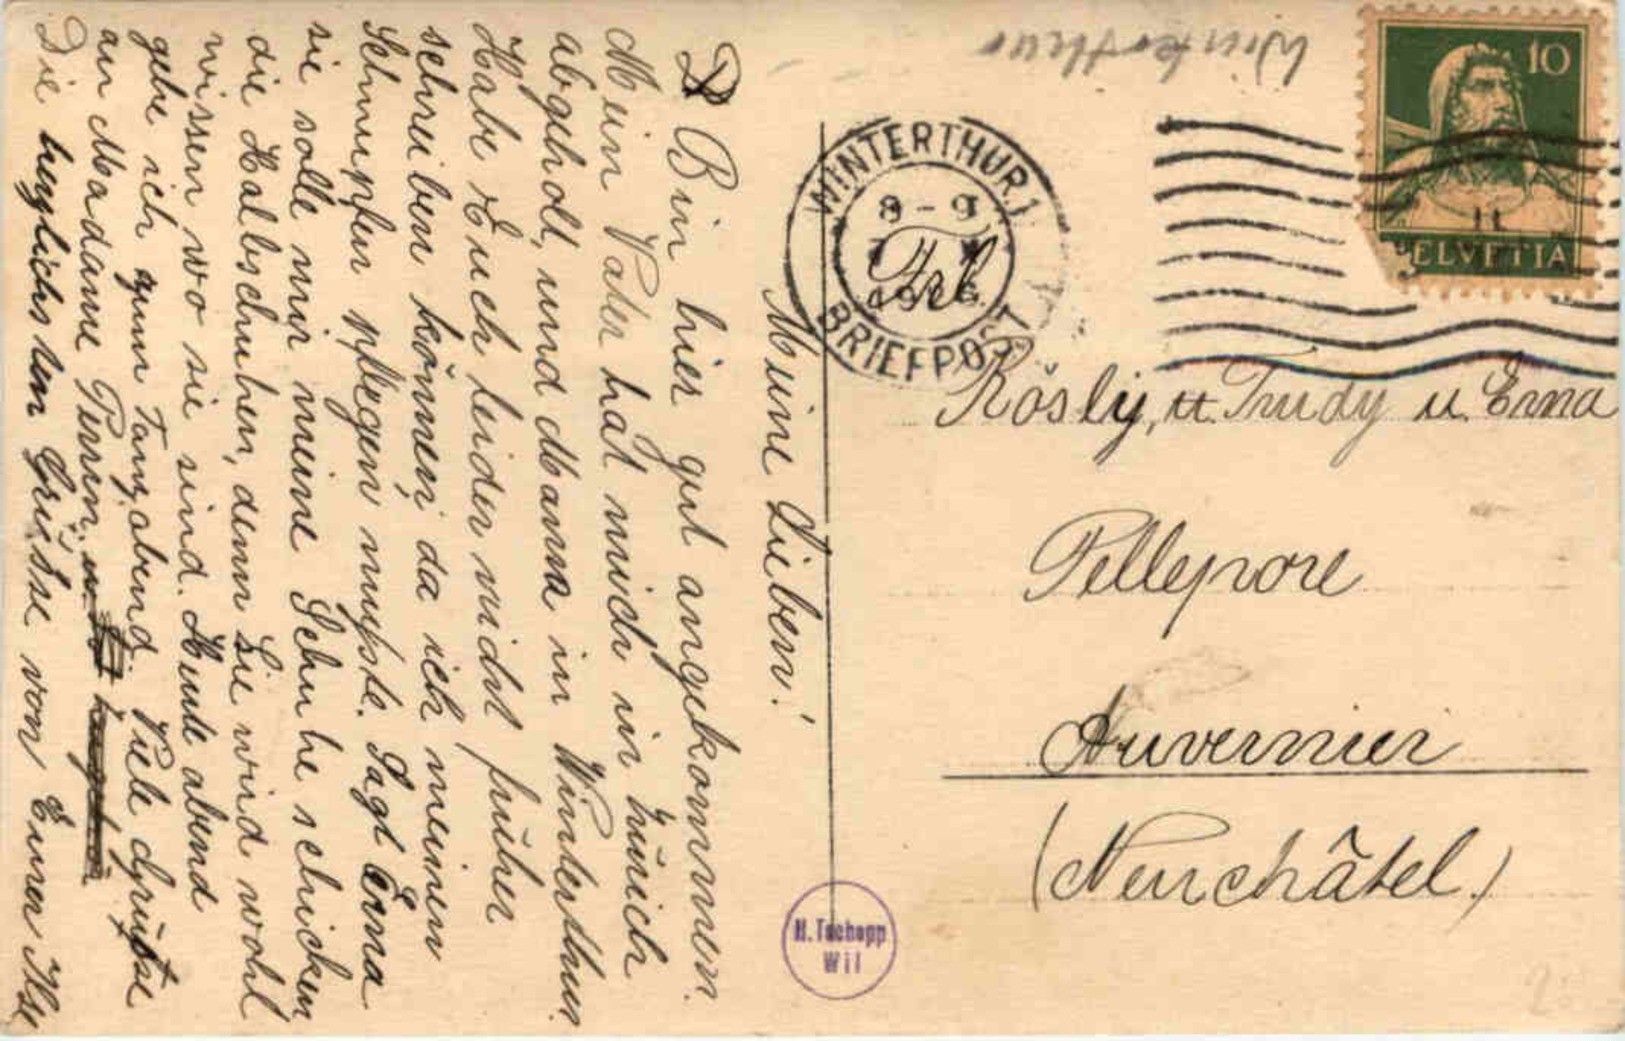 Meine Lieben!
Bin hier gut angekommen.
Mein Vater hat mich in Zürich
abgeholt, und Mama in Winterthur.
Habe Euch leider nicht früher
schreiben können, da ich meinen
Schnupfen pflegen mußte. Sagt Erna
sie solle mir meine Schuhe schicken
die Halbschuhen, denn Sie wird wohl
wissen wo sie sind. Heute abend
gehe ich zum Tanzabend. Viele Grüsse
an Madame Perrin.
Die herzlichsten Grüsse von Eurer Ilse
Winterthur
10
HELVETIA
WINTERTHUR 1
8-9
BRIEFPOST
Frl.
Rösly, u. Trudy u. Erna
Auvernier
(Neuchâtel)
H. Tschopp
Wil